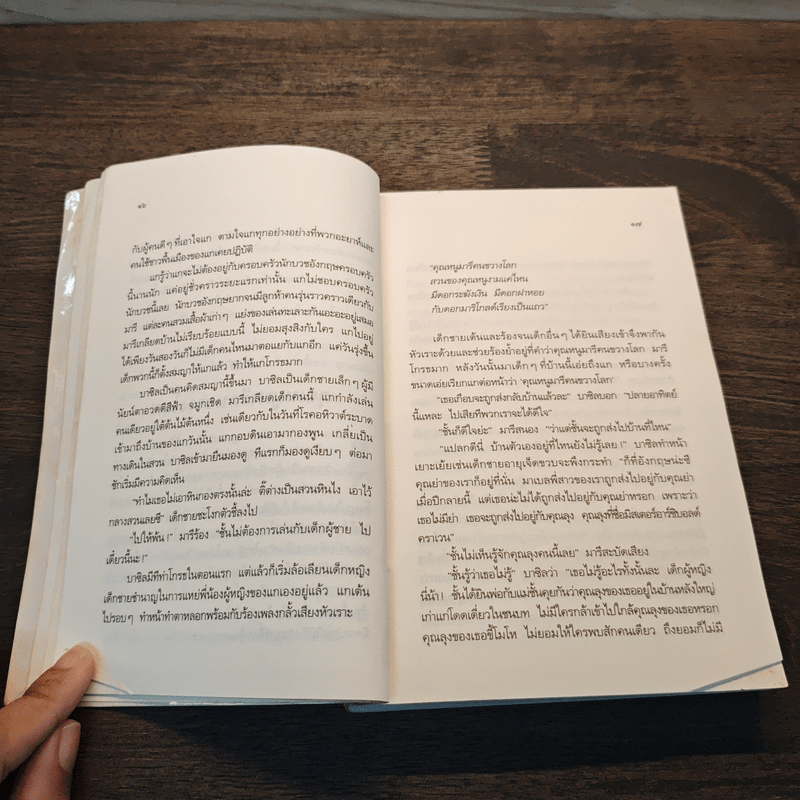 ๑๖
กับผู้คนดีๆ ที่เอาใจแก ตามใจแกทุกอย่างอย่างที่พวกอะยาห์และ
คนใช้ชาวพื้นเมืองของแกเคยปฏิบัติ
แกรู้ว่าแกจะไม่ต้องอยู่กับครอบครัวนักบวชอังกฤษครอบครัว
นี้นานนัก แค่อยู่ชั่วคราวระยะแรกเท่านั้น แกไม่ชอบครอบครัว
นักบวชนี้เลย นักบวชอังกฤษยากจนมีลูกห้าคนรุ่นราวคราวเดียวกับ
มารี แต่ละคนสวมเสื้อผ้าเก่าๆ แย่งของเล่นทะเลาะกันเอะอะอยู่เสมอ
มารีเกลียดบ้านไม่เรียบร้อยแบบนี้ ไม่ยอมสุงสิงกับใคร แกไปอยู่
ได้เพียงวันสองวันก็ไม่มีเด็กคนไหนมาตอแยกับแกอีก แค่วันรุ่งขึ้น
เด็กพวกนี้ก็ตั้งสมญาให้แกแล้ว ทำให้แกโกรธมาก
บาซิลเป็นคนคิดสมญานี้ขึ้นมา บาซิลเป็นเด็กชายเล็กๆ ผู้มี
นัยน์ตาอวดดีสีฟ้า จมูกเชิด มารีเกลียดเด็กคนนี้ แกกำลังเล่น
คนเดียวอยู่ใต้ต้นไม้ต้นหนึ่ง เช่นเดียวกับในวันที่โรคอหิวาต์ระบาด
เข้ามาถึงบ้านของแกวันนั้น แกกอบดินเอามากองพูน เกลี่ยเป็น
ทางเดินในสวน บาซิลเข้ามายืนมองดู ทีแรกก็มองดูเงียบๆ ต่อมา
ชักเริ่มมีความคิดเห็น
"ทำไมเธอไม่เอาหินกองตรงนั้นล่ะ ตี๊ต่างเป็นสวนหินไง เอาไว้
กลางสวนเลยซี" เด็กชายชะโงกตัวชี้ลงไป
"ไปให้พ้น!" มารีร้อง "ชั้นไม่ต้องการเล่นกับเด็กผู้ชาย ไป
เดี๋ยวนี้นะ!"
บาซิลมีทีท่าโกรธในตอนแรก แต่แล้วก็เริ่มล้อเลียนเด็กหญิง
เด็กชายชำนาญในการแหย่พี่น้องผู้หญิงของแกเองอยู่แล้ว แกเต้น
ไปรอบๆ ทำหน้าทำตาหลอกพร้อมกับร้องเพลงกลั้วเสียงหัวเราะ
๑๗
"คุณหนูมารีคนขวางโลก
สวนของคุณหนูงามแค่ไหน
มีดอกระฆังเงิน มีดอกฝาหอย
กับดอกมารีโกลด์เรียงเป็นแถว"
เด็กชายเต้นและร้องจนเด็กอื่นๆ ได้ยินเสียงเข้าจึงพากัน
หัวเราะด้วยและช่วยร้องย้ำอยู่ที่คำว่าคุณหนูมารีคนขวางโลก มารี
โกรธมาก หลังวันนั้นมาเด็กๆ ที่บ้านนี้เอ่ยถึงแก หรือบางครั้ง
ขณะเอ่ยเรียกแกต่อหน้าว่า 'คุณหนูมารีคนขวางโลก'
"เธอเกือบจะถูกส่งกลับบ้านแล้วละ" บาซิลบอก "ปลายอาทิตย์
นี้แหละ ไปเสียทีพวกเราจะได้ดีใจ"
"ชั้นก็ดีใจย่ะ" มารีสนอง "ว่าแต่ชั้นจะถูกส่งไปบ้านที่ไหน"
"แปลกดีนี่ บ้านตัวเองอยู่ที่ไหนยังไม่รู้เลย!" บาซิลทำหน้า
เยาะเย้ยเช่นเด็กชายอายุเจ็ดขวบจะพึงกระทำ "ก็ที่อังกฤษน่ะซี
คุณย่าของเราก็อยู่ที่นั่น มาเบลพี่สาวของเราถูกส่งไปอยู่กับคุณย่า
เมื่อปีกลายนี้ แต่เธอน่ะไม่ได้ถูกส่งไปอยู่กับคุณย่าหรอก เพราะว่า
เธอไม่มีย่า เธอจะถูกส่งไปอยู่กับคุณลุง คุณลุงที่ชื่อมิสเตอร์อาร์ชิบอลด์
คราเวน"
"ชั้นไม่เห็นรู้จักคุณลุงคนนี้เลย" มารีสะบัดเสียง
"ชั้นรู้ว่าเธอไม่รู้" บาซิลว่า "เธอไม่รู้อะไรทั้งนั้นละ เด็กผู้หญิง
นี่น้า! ชั้นได้ยินพ่อกับแม่ชั้นคุยกันว่าคุณลุงของเธออยู่ในบ้านหลังใหญ่
เก่าแก่โดดเดี่ยวในชนบท ไม่มีใครกล้าเข้าไปใกล้คุณลุงของเธอหรอก
คุณลุงของเธอขี้โมโห ไม่ยอมให้ใครพบสักคนเดียว ถึงยอมก็ไม่มี